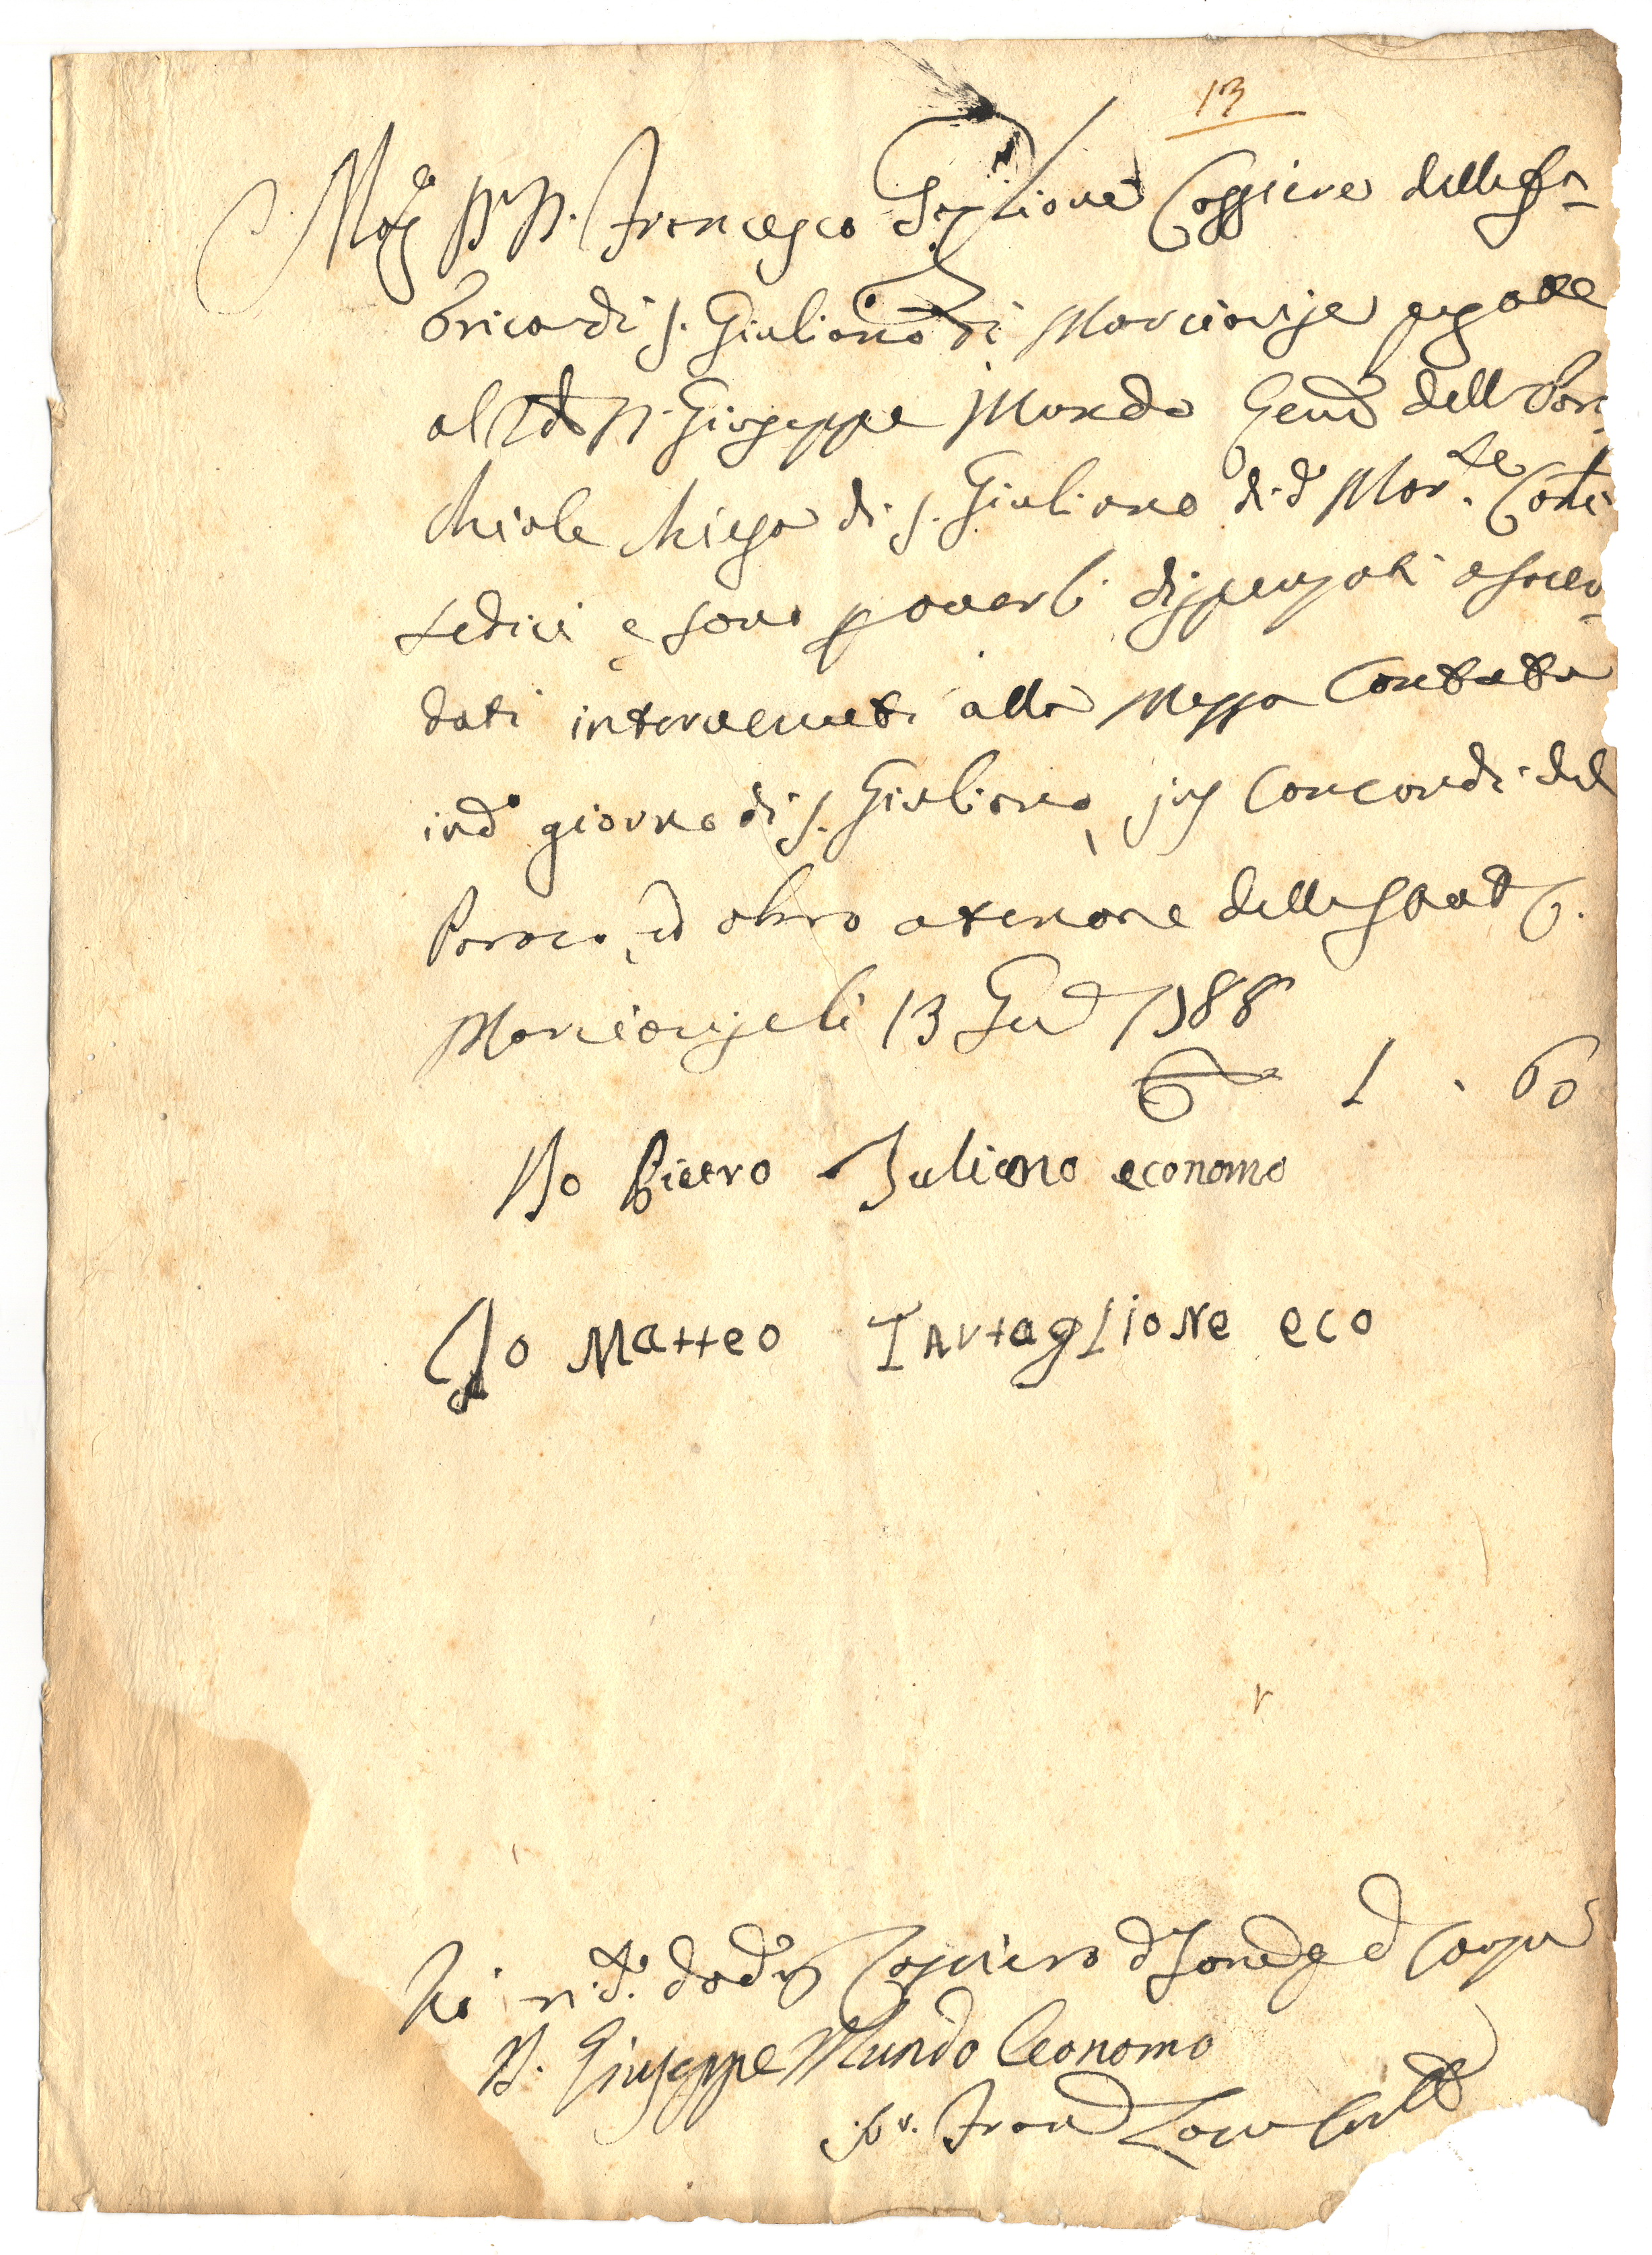 13
Mag.co D. D. Francesco Taglione Cassiere della Fa-
brica di S. Giuliano di Marcianise pagate
al Rdo D. Giuseppe Mondo dell Par-
chiale Chiesa di S. Giuliano di d.o Mar.se Carlini
sedici e sono per averli dispenzati a sacer-
doti intervenuti alla Messa Cantata
in d.o giorno di S. Giuliano, jus Concordi del
Paroco, ed altro a tenore delle
Marcianise li 13 Gen.o 1788
1 . 60
Io Pietro Juliano economo
Io Matteo Tartaglione eco
Cassiero
D. Giuseppe Mundo Economo